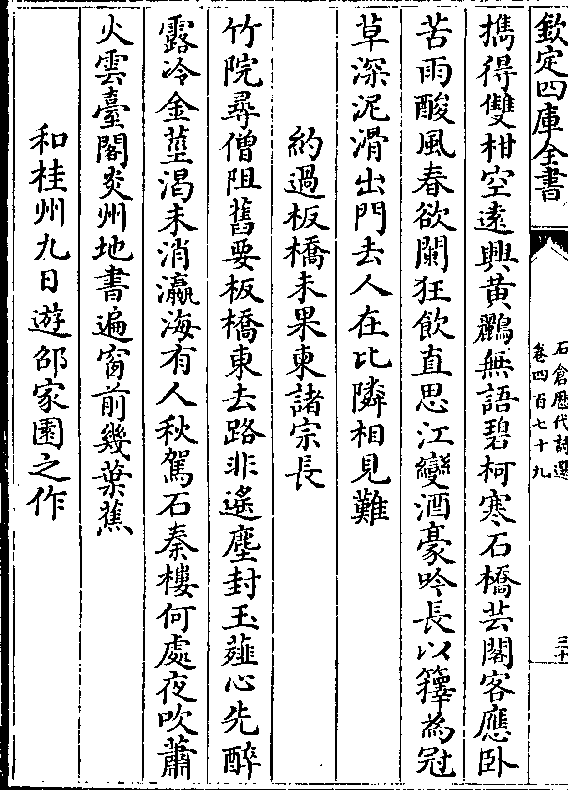 欽定四庫全書
石倉歷代詩選
卷四百七十九
三十
攜得雙柑空遠興黃鸝無語碧柯寒石橋芸閣客應卧
苦雨酸風春欲闌狂飲直思江變酒豪吟長以籜為冠
草深泥滑出門去人在比隣相見難
約過板橋未果柬諸宗長
竹院尋僧阻舊要板橋東去路非遙塵封玉薤心先醉
露冷金莖渴未消瀛海有人秋駕石秦樓何處夜吹蕭
火雲臺閣炎州地書遍窗前幾葉蕉
和桂州九日遊邵家園之作